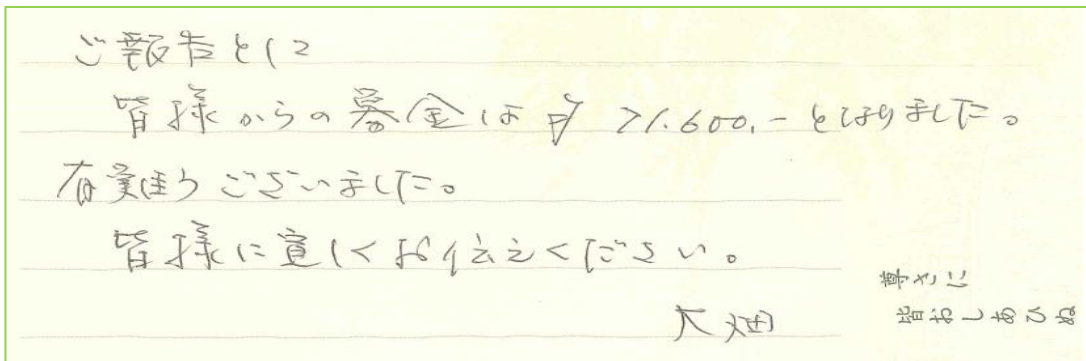 ご報告として
皆様からの募金は¥21.600.-となりました。
有難うございました。
皆様に宜しくお伝えください。
大畑
皆おしあひぬ